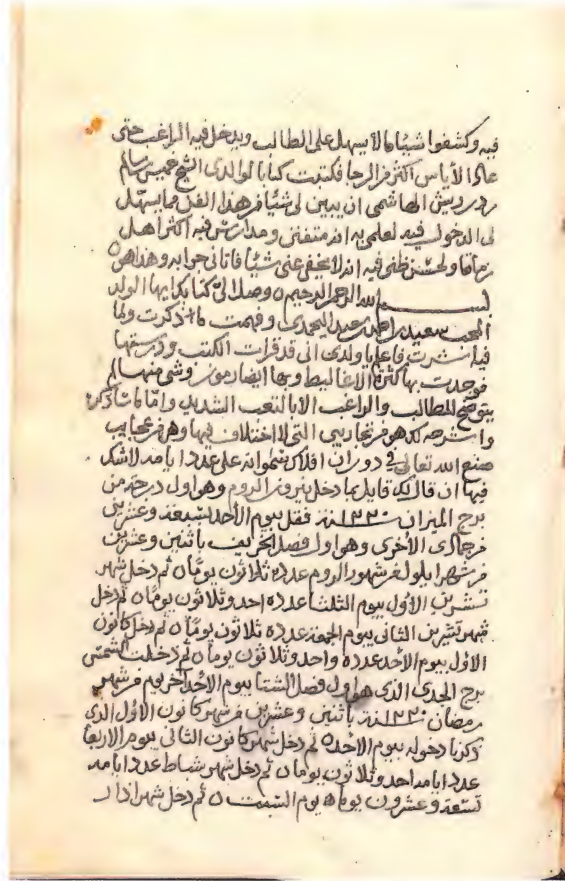 فيه وكشفوا شيئا مالا يسهل على الطالب ويدخل فيه الراغب حتى
عاد الأياس أكثر من الرجا فكتبت كتابا لوالدى الشيخ عميس رسالم
بن درويش الهاشمى ان يبين لى شيئا من هذا الفن مما يسهل
لى الدخول فيه لعلمى به انه متفنن ومدارس فيه اكثر اهل
زماننا ولحسن ظنى فيه انه لا يخفى عنى شيئا فاتانى جوابه وهذا هو
بسم الله الرحمن الرحيم وصل الىّ كتابك ايها الولد
المحب سعيد بن احمد بن سعيد اليحمدى وفهمت ما ذكرت ولما
فيه شرحت فاعلم يا ولدى انى قد قرات الكتب ودرستها
فوجدت بها كثرة الاغاليط وبها ايضا رموز وشى منها لم
يتوضح للمطالب والراغب الا بالتعب الشديد واما ما سأذكره
واشرحه لك هو من تجاريبى التى لا اختلاف فيها وهى من عجايب
صنع الله تعالى فى دوران افلاك سمواته على عدد ايامه لا شك
فيها ان قال لك قايل بما دخل نيروز الروم وهو اول درجة من
برج الميزان ١٢٣٠ سنة فقل بيوم الأحد لسبعة وعشرين
من جمادى الأخرى وهو اول فصل الخريف باثنين وعشرين
من شهر ايلول من شهور الروم عدده ثلاثون يوما ثم دخل شهر
تشرين الأول بيوم الثلثا عدده احد وثلاثون يوما ثم دخل
شهر تشرين الثانى بيوم الجمعة عدده ثلاثون يوما ثم دخل كانون
الاول بيوم الأحد عدده واحد وثلاثون يوما ثم دخلت الشمس
برج الجدى الذى هو اول فصل الشتا بيوم الأحد آخر يوم من شهر
رمضان ١٢٣٠ سنة باثنين وعشرين من شهر كانون الأول الذى
ذكرنا دخوله بيوم الأحد ثم دخل شهر كانون الثانى بيوم الاربعا
عدد ايامه احد وثلاثون يوما ثم دخل شهر شباط عدد ايامه
تسعة وعشرون يوما بيوم السبت ثم دخل شهر اذار